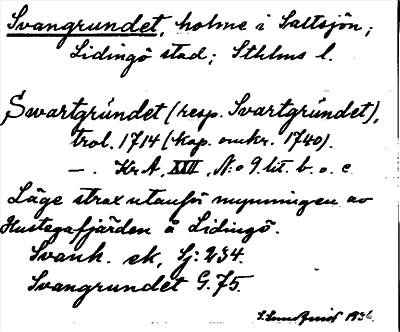 Svangrundet, holme i Saltsjön;
Lidingö stad; Sthlms l.
Swartgründet (resp. Svartgründet),
trol. 1714 (kop. omkr. 1740).
— . Kr A, XXII, N:o 9 lit. b. o. c.
Läge strax utanför mynningen av
Hustegafjärden å Lidingö.
Svank. ek, Sj: 234.
Svangrundet G. 75.
1936.